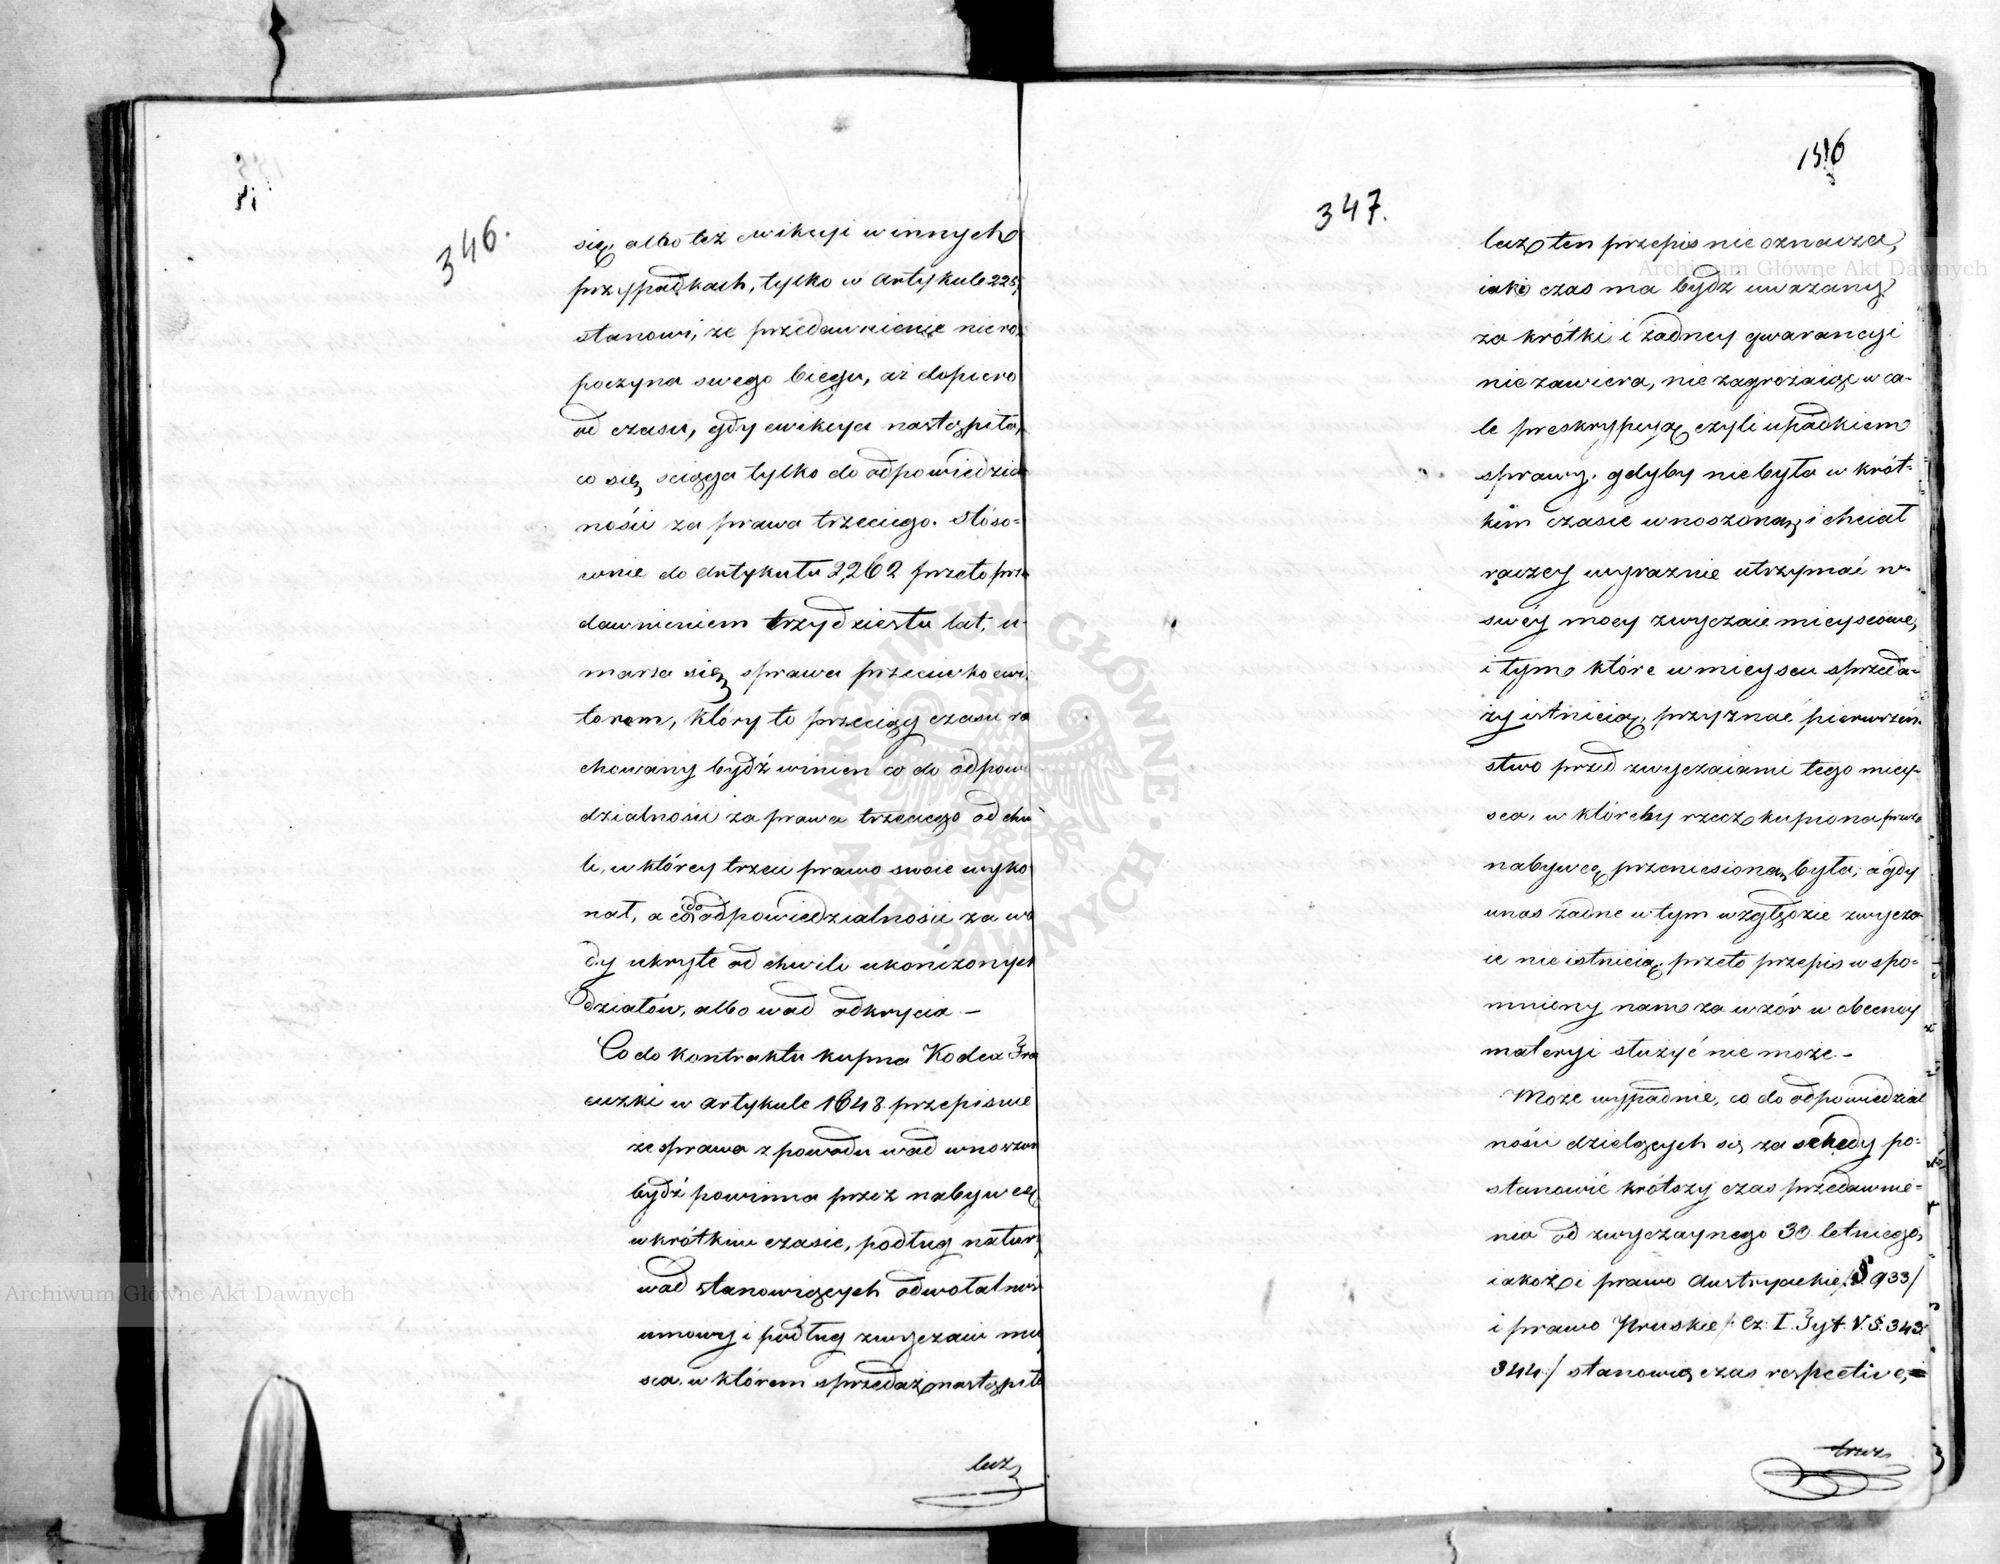 346.
się, albo też ewikcyi w innych
przypadkach, tylko w Artykule 225,
stanowi, że przedawnienie nie roz
poczyna swego biegu, aż dopiero
od czasu, gdy ewikcya nastąpiła,
co się ściąga tylko do odpowiedzial
ności za prawa trzeciego. Stóso=
wnie do Artykułu 2,262 przeto prze
dawnieniem trzydziestu lat, u-
marza się sprawa przeciwko ewi
torom, który to przeciąg czasu ra
chowany bydź winien co do odpowie
dzialności za prawa trzeciego od chwi
li, w którey trzeci prawo swoie wyko
nał, a co do odpowiedzialności za wa
dy ukryte od chwili ukończonych
działów, albo wad odkrycia. —
Co do kontraktu kupna Kodex Fra
cuzki w artykule 1648. przepisuie
że sprawa z powodu wad wnoszon
bydź powinna przez nabywcę
w krótkim czasie, podług natury
wad stanowiących odwołalność
umowy i podług zwyczaiu miey
sca, w którem sprzedaż nastąpiła
lecz
1516
347.
lecz ten przepis nie oznacza,
iaki czas ma bydź uważany
za krótki i żadney gwarancyi
nie zawiera, nie zagrożaiąc w ca-
le preskrypcyą czyli upadkiem
sprawy, gdyby nie była w krót=
kim czasie wnoszoną, i chciał
raczey wyraźnie utrzymać w-
swéy mocy zwyczaie mieyscowe,
i tym które w mieyscu sprzeda=
ży istnieią, przyznać pierwszeń-
stwo przed zwyczaiami tego miey-
sca, w któreby rzecz kupiona przez
nabywcę przeniesioną była, a gdy
u nas żadne w tym względzie zwycza
ie nie istnieią, przeto przepis wspo=
mniony nam za wzór w obecney
materyi służyć nie może. —
Może wypadnie, co do odpowiedzial
ności dzielących się za schedy po=
stanowić krótszy czas przedawnie=
nia od zwyczaynego 30 letniego,
iakoż i prawo Austryackie /:§ 933/
i prawo Pruskie /: Cz. I. Tyt. V. §. 343.
344:/ stanowią czas respective,
trzech
Archiwum Główne Akt Dawnych
Archiwum Główne Akt Dawnych
ARCHIWUM GŁÓWNE AKT DAWNYCH